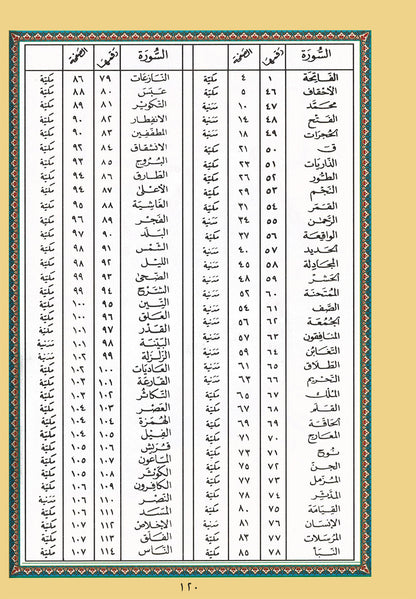 السورة رقمها الصفحة
الفاتحة ١ ٤ مكية
الأحقاف ٤٦ ٥ مكية
محمد ٤٧ ١٠ مدنية
الفتح ٤٨ ١٤ مدنية
الحجرات ٤٩ ١٨ مدنية
ق ٥٠ ٢١ مكية
الذاريات ٥١ ٢٣ مكية
الطور ٥٢ ٢٦ مكية
النجم ٥٣ ٢٩ مكية
القمر ٥٤ ٣١ مكية
الرحمن ٥٥ ٣٤ مدنية
الواقعة ٥٦ ٣٧ مكية
الحديد ٥٧ ٤٠ مدنية
المجادلة ٥٨ ٤٥ مدنية
الحشر ٥٩ ٤٨ مدنية
الممتحنة ٦٠ ٥٢ مدنية
الصف ٦١ ٥٤ مدنية
الجمعة ٦٢ ٥٦ مدنية
المنافقون ٦٣ ٥٧ مدنية
التغابن ٦٤ ٥٩ مدنية
الطلاق ٦٥ ٦١ مدنية
التحريم ٦٦ ٦٣ مدنية
الملك ٦٧ ٦٥ مكية
القلم ٦٨ ٦٧ مكية
الحاقة ٦٩ ٦٩ مكية
المعارج ٧٠ ٧١ مكية
نوح ٧١ ٧٣ مكية
الجن ٧٢ ٧٥ مكية
المزمل ٧٣ ٧٧ مكية
المدثر ٧٤ ٧٨ مكية
القيامة ٧٥ ٨٠ مكية
الإنسان ٧٦ ٨١ مدنية
المرسلات ٧٧ ٨٣ مكية
النبأ ٧٨ ٨٥ مكية
السورة رقمها الصفحة
النازعات ٧٩ ٨٦ مكية
عبس ٨٠ ٨٨ مكية
التكوير ٨١ ٨٩ مكية
الانفطار ٨٢ ٩٠ مكية
المطففين ٨٣ ٩٠ مكية
الانشقاق ٨٤ ٩٢ مكية
البروج ٨٥ ٩٣ مكية
الطارق ٨٦ ٩٤ مكية
الأعلى ٨٧ ٩٤ مكية
الغاشية ٨٨ ٩٥ مكية
الفجر ٨٩ ٩٦ مكية
البلد ٩٠ ٩٧ مكية
الشمس ٩١ ٩٨ مكية
الليل ٩٢ ٩٨ مكية
الضحى ٩٣ ٩٩ مكية
الشرح ٩٤ ٩٩ مكية
التين ٩٥ ١٠٠ مكية
العلق ٩٦ ١٠٠ مكية
القدر ٩٧ ١٠١ مكية
البينة ٩٨ ١٠١ مدنية
الزلزلة ٩٩ ١٠٢ مدنية
العاديات ١٠٠ ١٠٢ مكية
القارعة ١٠١ ١٠٣ مكية
التكاثر ١٠٢ ١٠٣ مكية
العصر ١٠٣ ١٠٤ مكية
الهمزة ١٠٤ ١٠٤ مكية
الفيل ١٠٥ ١٠٤ مكية
قريش ١٠٦ ١٠٥ مكية
الماعون ١٠٧ ١٠٥ مكية
الكوثر ١٠٨ ١٠٥ مكية
الكافرون ١٠٩ ١٠٦ مكية
النصر ١١٠ ١٠٦ مدنية
المسد ١١١ ١٠٦ مكية
الإخلاص ١١٢ ١٠٧ مكية
الفلق ١١٣ ١٠٧ مكية
الناس ١١٤ ١٠٧ مكية
١٢٠